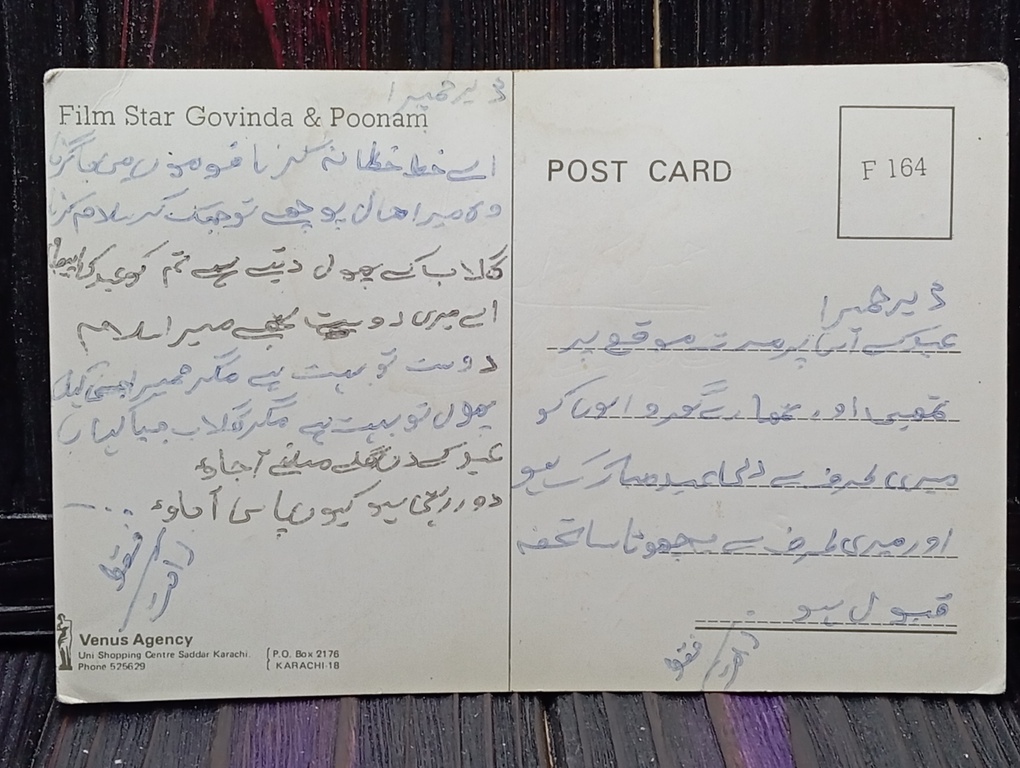 ڈیر حمیرا
Film Star Govinda & Poonam
اے خط خطا نہ کرنا قوموں میں جا گرنا
وہ میرا حال پوچھے تو جھک کر سلام کرنا
گلاب کے پھول دیتے ہے تم کو عید کا
اے میری دوست تجھے میرا سلام
دوست تو بہت ہے مگر حمیرا
پھول تو بہت ہے مگر گلاب جیسا کہاں
عید کے دن گلے ملنے آجاؤ
دور رہتی ہو کیوں پاس آجاؤ ....
فقط
Venus Agency
Uni Shopping Centre Saddar Karachi.
Phone 525629
P.O. Box 2176
KARACHI-18
POST CARD
F 164
ڈیر حمیرا
عید کے اس پرمسرت موقع پر
تمھیں اور تمھارے گھر والوں کو
میری طرف سے دلی عید مبارک ہو
اور میری طرف سے چھوٹا سا تحفہ
قبول ہو .
فقط